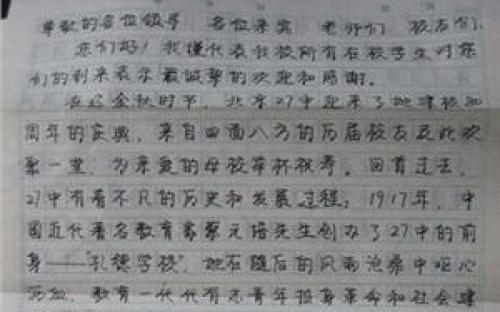 尊敬的各位领导 各位来宾 老师们 校友们.
您们好！我谨代表我校所有在校学生对您
们的到来表示最诚挚的欢迎和感谢.
在这金秋时节，北京27中迎来了她建校90
周年的庆典，来自四面八方的历届校友在此欢
聚一堂，为亲爱的母校举杯祝寿。回首过去，
27中有着不凡的历史和发展过程；1917年，中
国近代著名教育家蔡元培先生创办了27中的前
身——"孔德学校"，她在随后的风雨沧桑中呕心
沥血，教育一代代有志青年投身革命和社会建